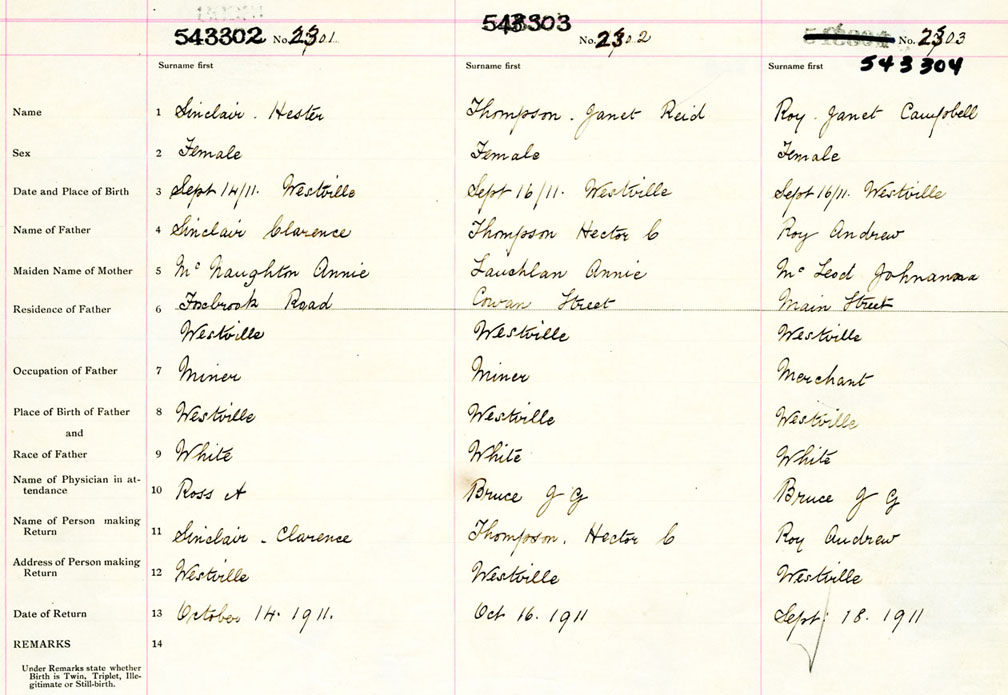 543302 No. 2301
543303 No. 2302
No. 2303
543304
Surname first Surname first Surname first
Name 1 Sinclair . Hester Thompson . Janet Reid Roy . Janet Campbell
Sex 2 Female Female Female
Date and Place of Birth 3 Sept 14/11. Westville Sept 16/11. Westville Sept 16/11. Westville
Name of Father 4 Sinclair Clarence Thompson Hector C Roy Andrew
Maiden Name of Mother 5 Mc Naughton Annie Lauchlan Annie Mc Leod Johnanna
Residence of Father 6 Foxbrook Road Cowan Street Main Street
Westville Westville Westville
Occupation of Father 7 Miner Miner Merchant
Place of Birth of Father 8 Westville Westville Westville
and
Race of Father 9 White White White
Name of Physician in at-
tendance 10 Ross A Bruce J G Bruce J G
Name of Person making
Return 11 Sinclair - Clarence Thompson . Hector C Roy Andrew
Address of Person making
Return 12 Westville Westville Westville
Date of Return 13 October 14. 1911. Oct 16. 1911 Sept 18. 1911
REMARKS 14
Under Remarks state whether
Birth is Twin, Triplet, Ille-
gitimate or Still-birth.